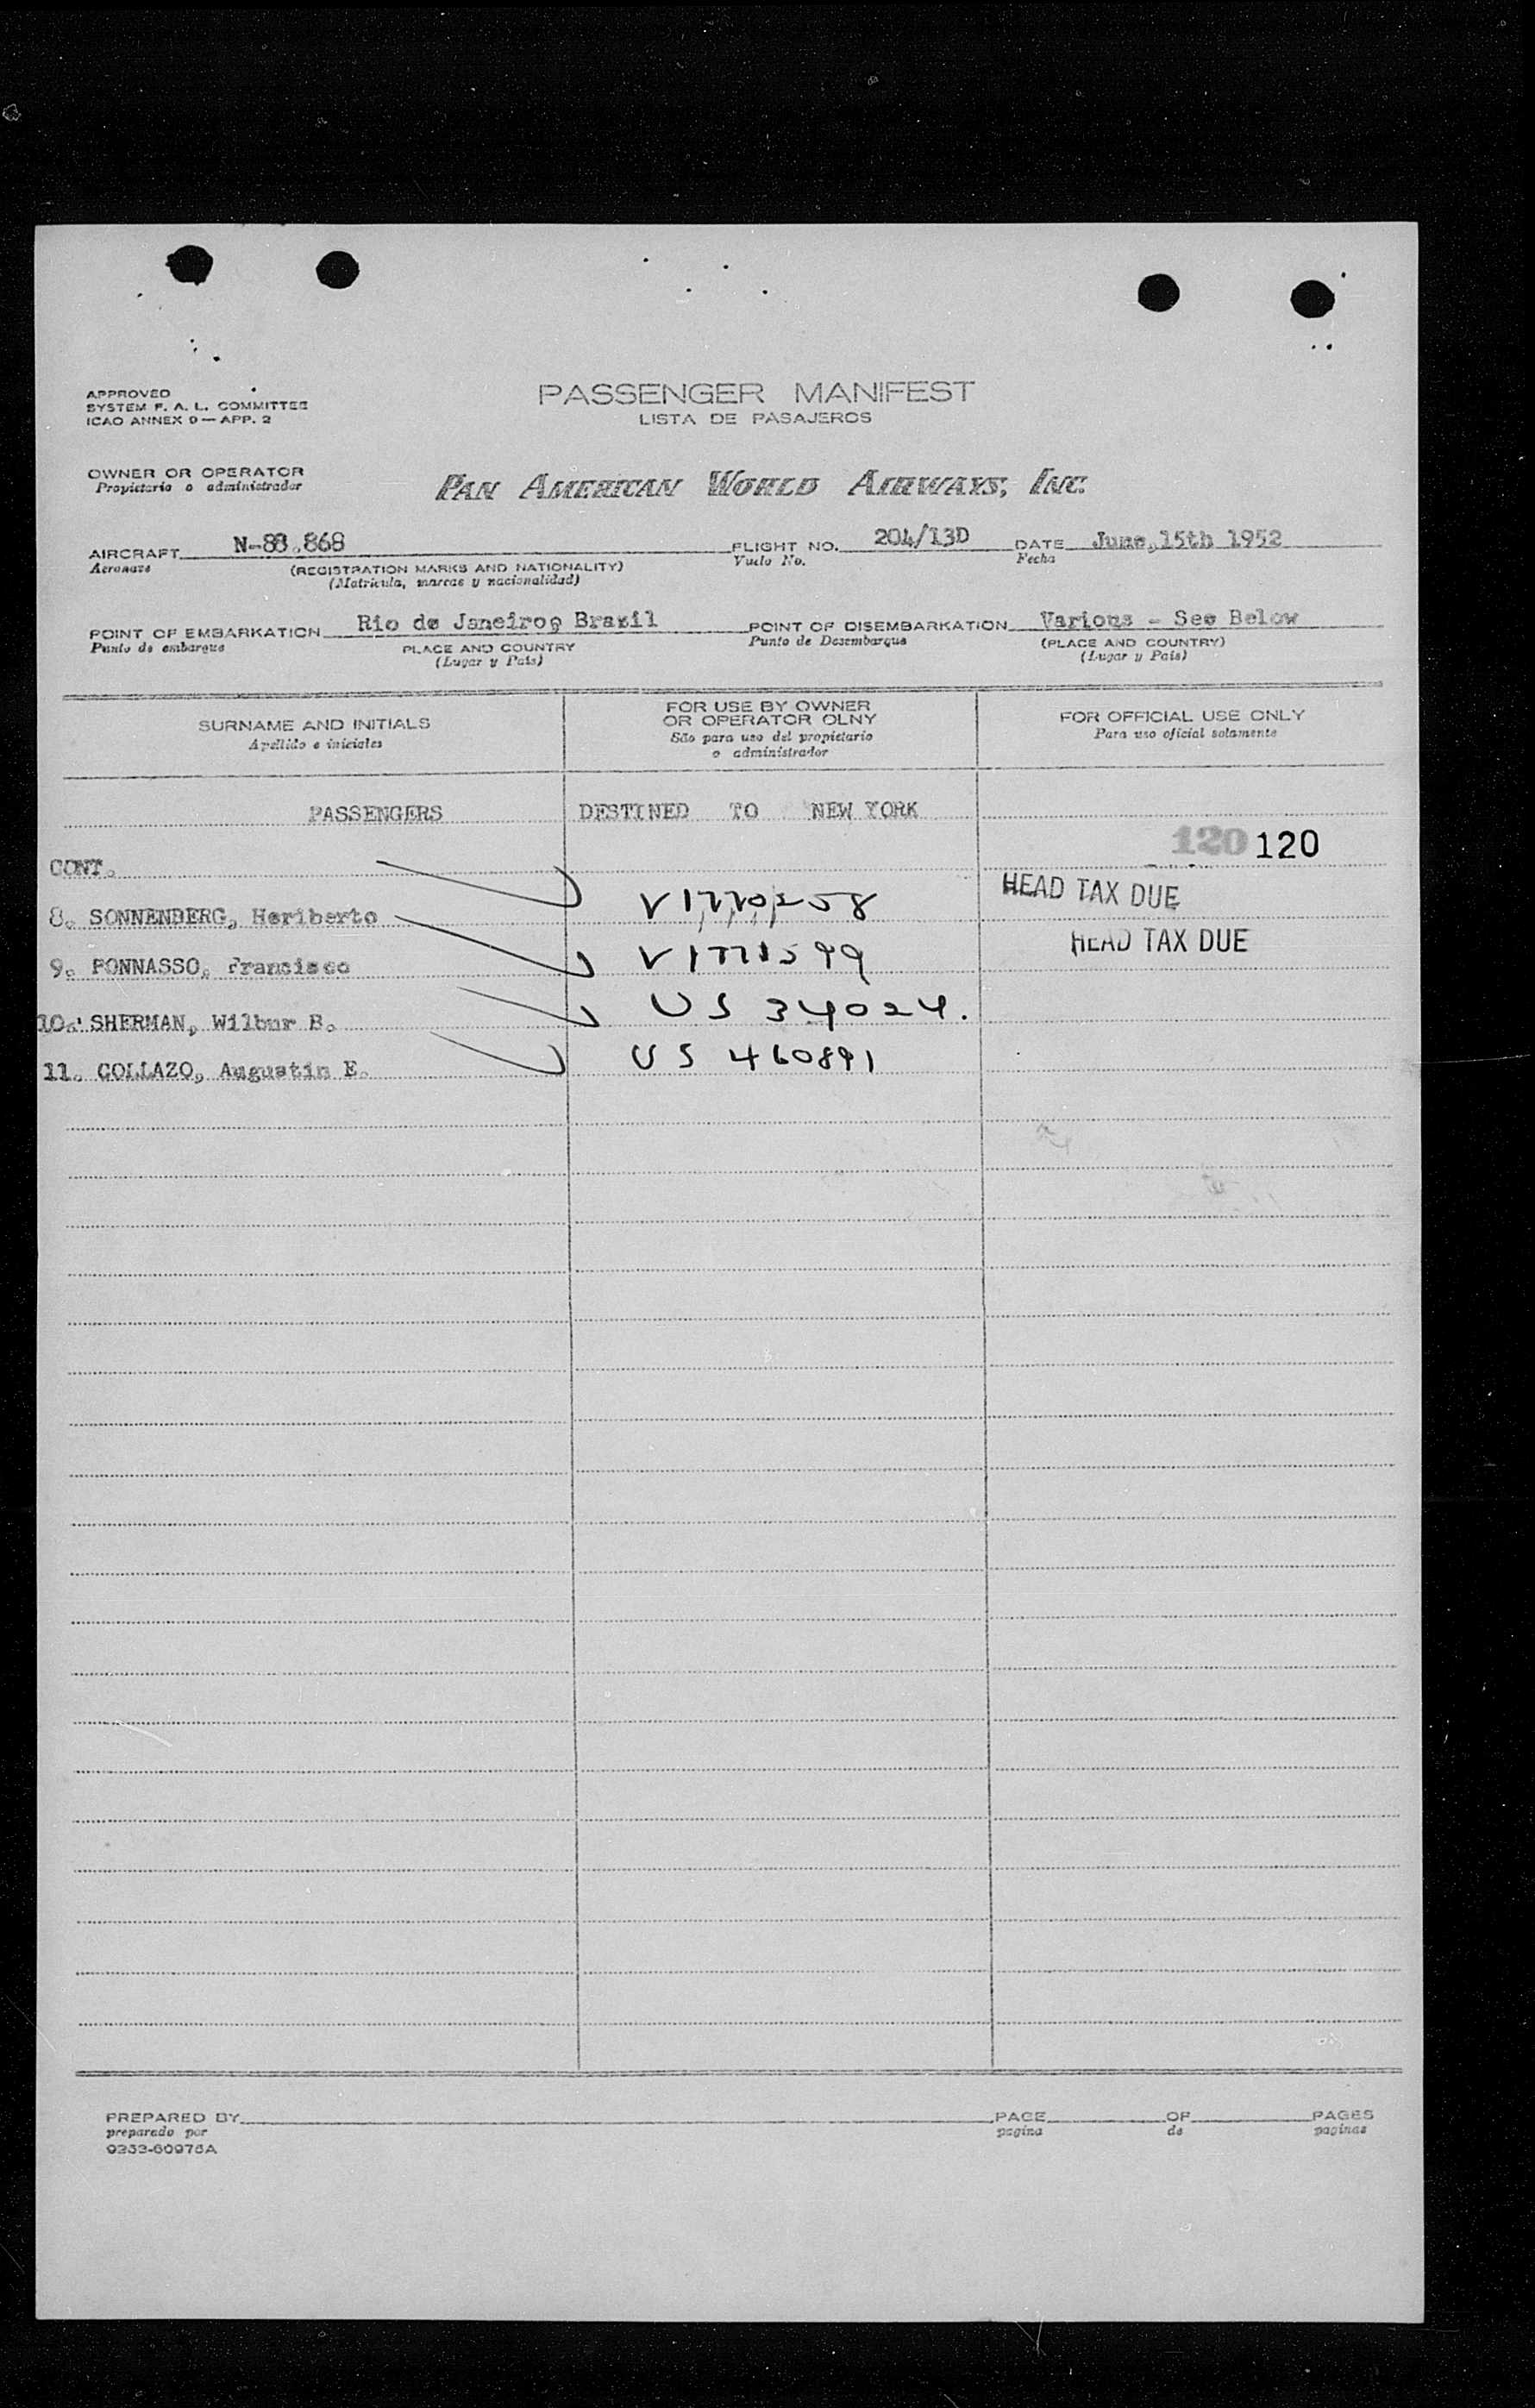 APPROVED
SYSTEM F. A. L. COMMITTEE
ICAO ANNEX 9 — APP. 2
PASSENGER MANIFEST
LISTA DE PASAJEROS
OWNER OR OPERATOR
Propietario o administrador
PAN AMERICAN WORLD AIRWAYS, INC.
AIRCRAFT N-88.868 FLIGHT NO. 204/13D DATE June,15th 1952
Aeronave (REGISTRATION MARKS AND NATIONALITY) Vuelo No. Fecha
(Matricula, marcas y nacionalidad)
POINT OF EMBARKATION Rio de Janeiro, Brazil POINT OF DISEMBARKATION Various - See Below
Punto de embarque PLACE AND COUNTRY Punto de Desembarque (PLACE AND COUNTRY)
(Lugar y Pais) (Lugar y Pais)
SURNAME AND INITIALS
Apellido e iniciales
FOR USE BY OWNER
OR OPERATOR OLNY
São para uso del propietario
o administrador
FOR OFFICIAL USE ONLY
Para uso oficial solamente
PASSENGERS DESTINED TO NEW YORK
120 120
CONT.
HEAD TAX DUE
8. SONNENBERG, Heriberto V1770258
HEAD TAX DUE
9. PONNASSO, Francisco
10. SHERMAN, Wilbur B. US 34024.
11. COLLAZO, Augustin E. US 460891
PREPARED BY PAGE OF PAGES
preparado por pagina de paginas
9252-60976A